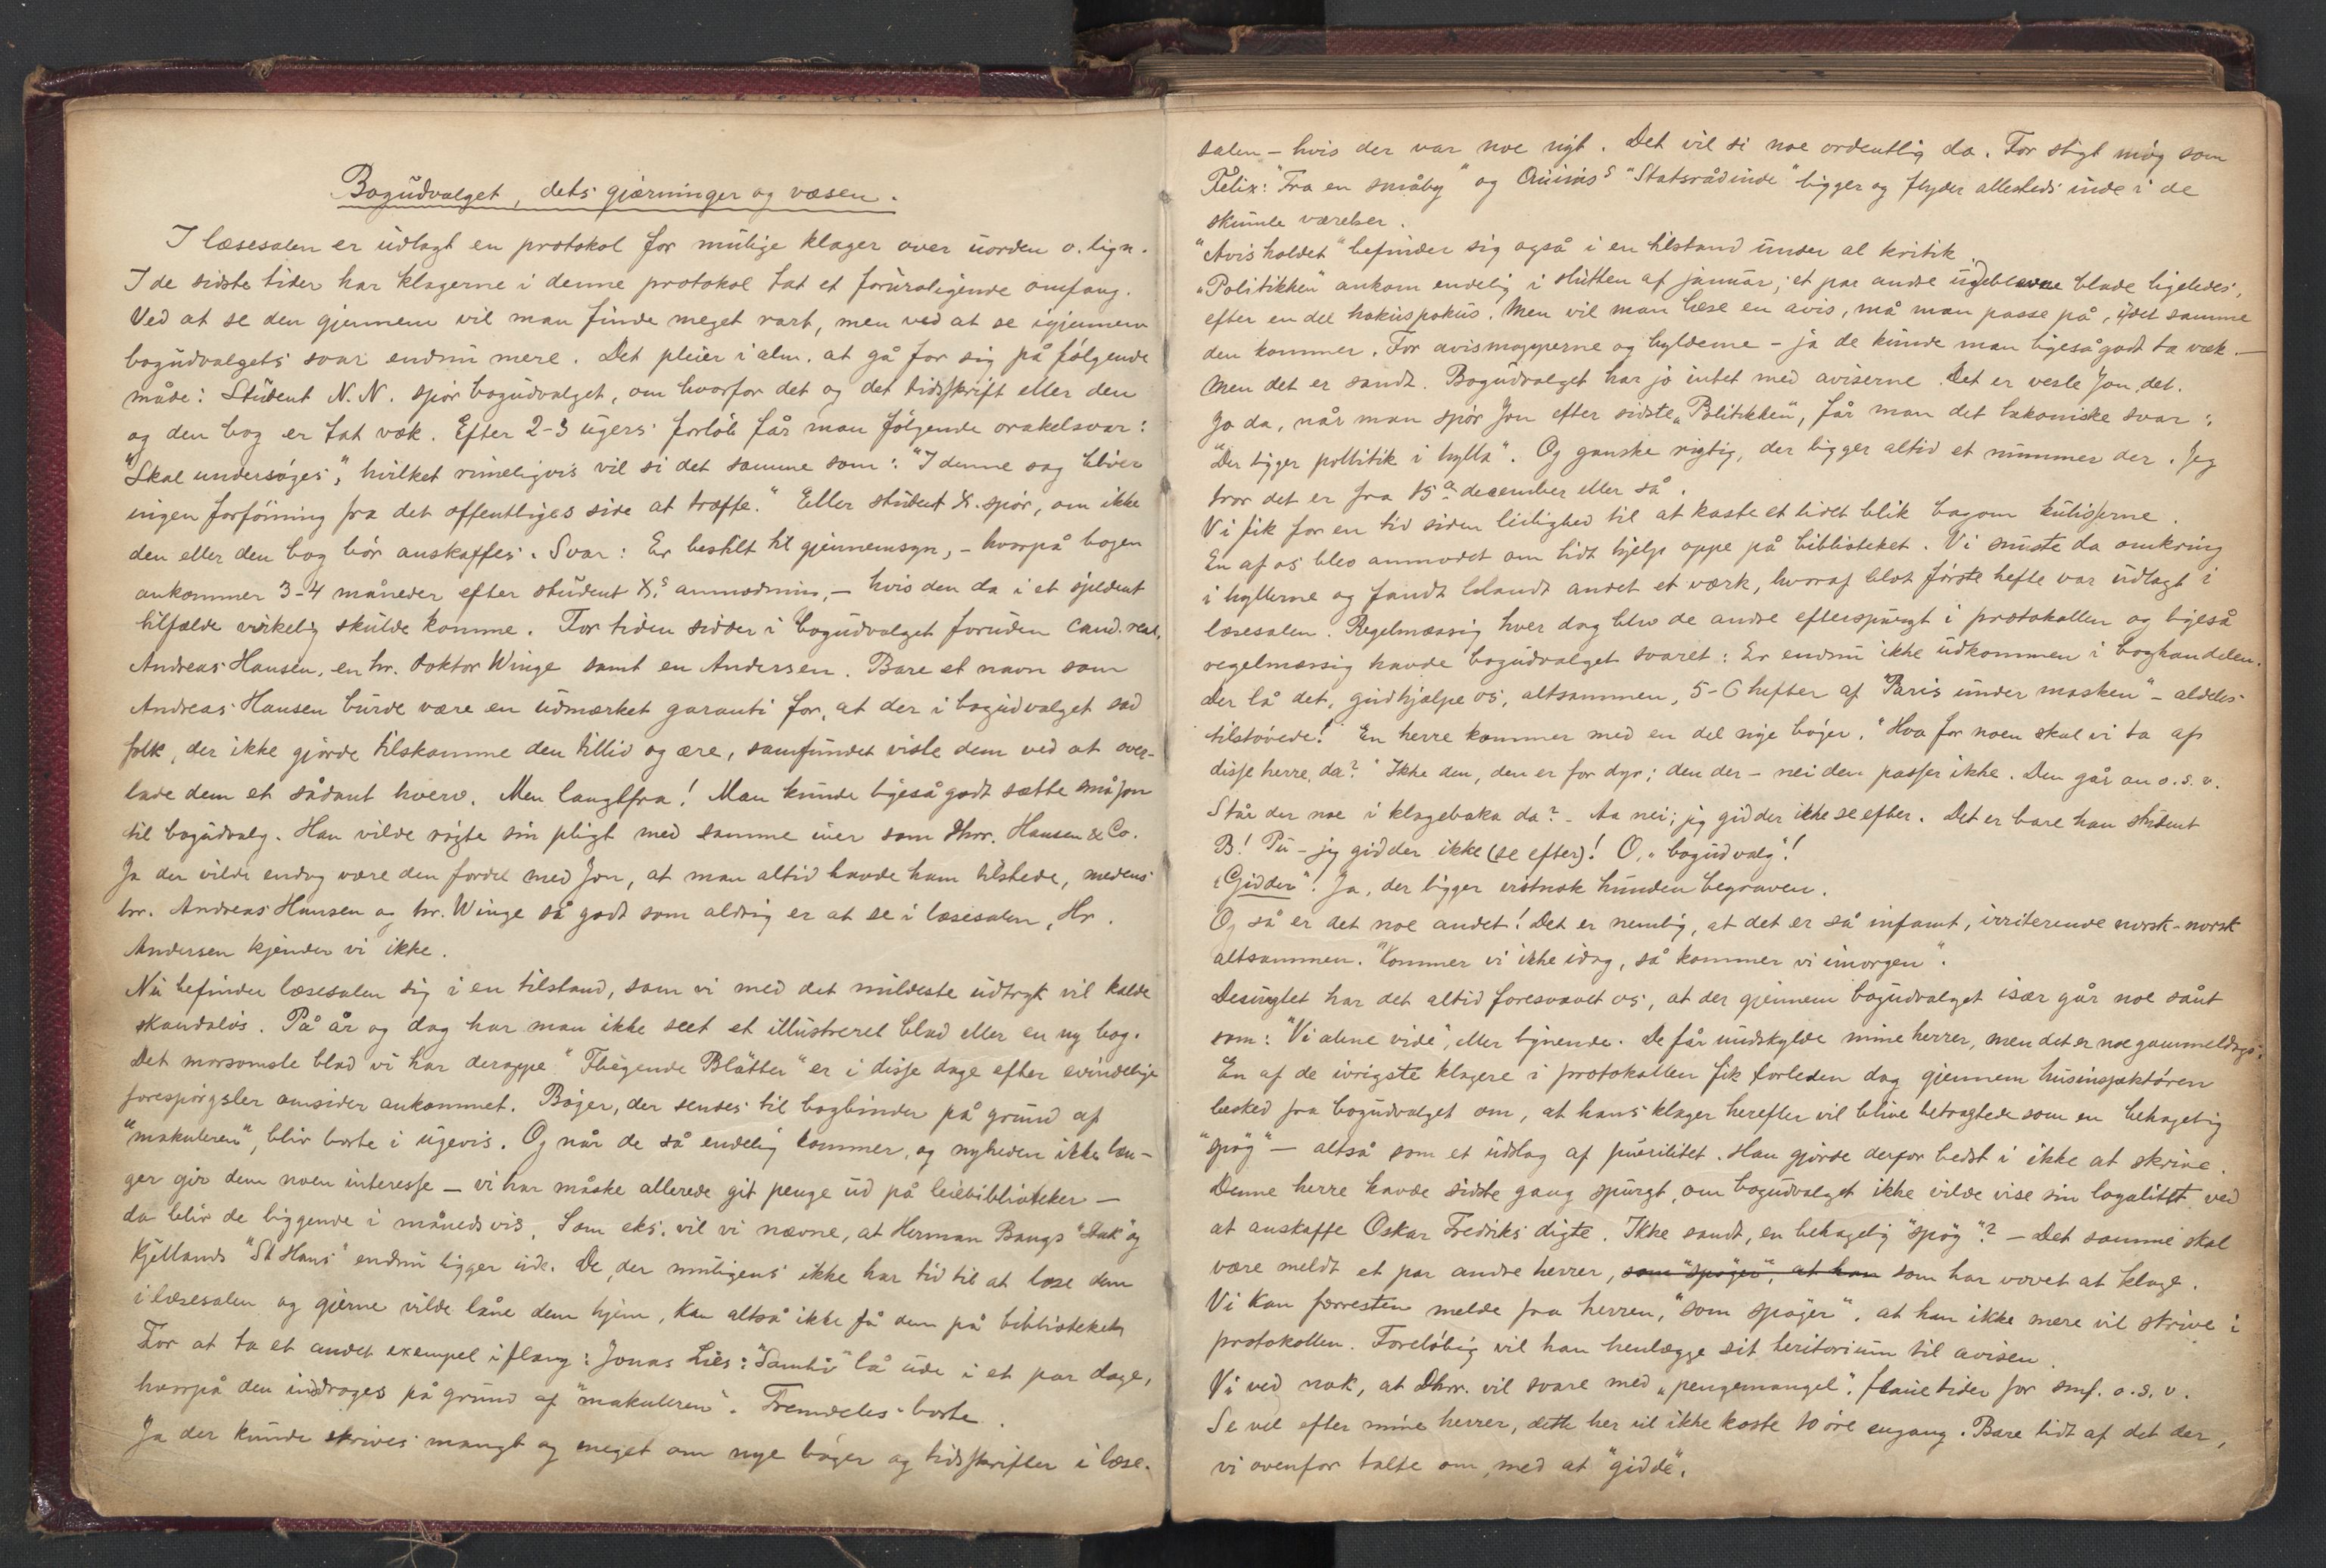 Bogudvalget, dets gjærninger og væsen.
I læsesalen er udlagt en protokol for mulige klager over uorden o. lign.
I de sidste tider har klagerne i denne protokol tat et foruroligende omfang.
Ved at se den gjennem vil man finde meget rart, men ved at se igjennem
bogudvalgets svar endnu mere. Det pleier i alm. at gå for sig på følgende
måde: Student N.N. spør bogudvalget, om hvorfor det og det tidsskrift eller den
og den bog er tat væk. Efter 2-3 ugers forløb får man følgende orakelsvar:
"Skal undersøges", hvilket rimeligvis vil si det samme som: "I denne sag bliver
ingen forføining fra det offentliges side at træffe." Eller student X. spør, om ikke
den eller den bog bør anskaffes. Svar: Er bestilt til gjennemsyn, – hvorpå bogen
ankommer 3-4 måneder efter student X.s anmodning, – hvis den da i et sjeldent
tilfælde virkelig skulde komme. For tiden sidder i bogudvalget foruden cand. real.
Andreas Hansen, en hr. doktor Winge samt en Andersen. Bare et navn som
Andreas Hansen burde være en udmærket garanti for, at der i bogudvalget sad
folk, der ikke gjorde tilskamme den tillid og ære, samfundet viste dem ved at over-
lade dem et sådant hverv. Men langtfra! Man kunde ligeså godt sætte småjon
til bogudvalg. Han vilde røgte sin pligt med samme iver som Dhrr. Hansen & Co.
Ja der vilde endog være den fordel med Jon, at man altid havde ham tilstede, medens
hr. Andreas Hansen og hr. Winge så godt som aldrig er at se i læsesalen, Hr.
Andersen kjender vi ikke.
Nu befinder læsesalen sig i en tilstand, som vi med det mildeste udtryk vil kalde
skandaløs. På år og dag har man ikke seet et illustreret blad eller en ny bog.
Det morsomste blad vi har deroppe "Fliegende Blätter" er i disse dage efter evindelige
forespørgsler omsider ankommet. Bøger, der sendes til bogbinder på grund af
"makuleren", blir borte i ugevis. Og når de så endelig kommer, og nyheden ikke læn-
ger gir dem noen interesse – vi har måske allerede git penge ud på leiebiblioteker –
da blir de liggende i månedsvis. Som eks. vil vi nævne, at Herman Bangs "Stuk" og
Kjellands "St Hans" endnu ligger ude. De, der muligens ikke har tid til at læse dem
i læsesalen og gjerne vilde låne dem hjem, kan altså ikke få dem på biblioteket.
For at ta et andet exempel i flæng: Jonas Lies: "Samliv" lå ude i et par dage,
hvorpå den inddroges på grund af "makuleren". Fremdeles borte.
Ja der kunde skrives mangt og meget om nye bøger og tidsskrifter i læse-
salen – hvis der var noe nyt. Det vil si noe ordentlig da. For sligt møg som
Felix: "Fra en småby" og "Statsrådinde" ligger og flyder allesteds inde i de
skumle værelser.
"Avisholdet" befinder sig også i en tilstand under al kritik.
"Politikken" ankom endelig i slutten af januar; et par andre udeblevne blade ligeledes,
efter en del hokuspokus. Men vil man læse en avis, må man passe på, idet samme
den kommer. For avismapperne og hylderne – ja de kunde man ligeså godt ta væk. –
Men det er sandt. Bogudvalget har jo intet med aviserne. Det er vesle Jon, det.
Jo da, når man spør Jon efter sidste "Politikken", får man det lakoniske svar:
"Der ligger pollitik i hylla". Og ganske rigtig, der ligger altid et nummer der. Jeg
tror det er fra 15de december eller så.
Vi fik for en tid siden leilighed til at kaste et lidet blik bagom kulisserne.
En af os blev anmodet om lidt hjelp oppe på biblioteket. Vi snuste da omkring
i hyllerne og fandt blandt andet et værk, hvoraf blot første hefte var udlagt i
læsesalen. Regelmæssig hver dag blev de andre efterspurgt i protokollen og ligeså
regelmæssig havde bogudvalget svaret: Er endnu ikke udkommen i boghandelen.
Der lå det, gudhjælpe os, altsammen, 5-6 hefter af "Paris under masken" – aldeles
tilstøvede! En herre kommer med en del nye bøger. "Hva for noen skal vi ta af
disse herre, da?" Ikke den, den er for dyr; den der – nei den passer ikke. Den går an o.s.v.
Står der noe i klageboka da? – Aa nei; jeg gidder ikke se efter. Det er bare han student
B! Pu – jeg gidder ikke (se efter)! O, "bogudvalg"!
"Gidder". Ja, der ligger vistnok hunden begraven.
Og så er det noe andet! Det er nemlig, at det er så infamt, irriterende norsk-norsk
altsammen. "Kommer vi ikke idag, så kommer vi imorgen".
Desuagtet har det altid foresvævet os, at der gjennem bogudvalget især går noe sånt
som: "Vi alene vide", eller lignende. De får undskylde mine herrer, men det er noe gammeldags.
En af de ivrigste klagere i protokollen fik forleden dag gjennem husinspektøren
besked fra bogudvalget om, at hans klager herefter vil blive betragtede som en behagelig
"spøg" – altså som et udslag af puerilitet. Han gjorde derfor bedst i ikke at skrive.
Denne herre havde sidste gang spurgt, om bogudvalget ikke vilde vise sin loyalitet ved
at anskaffe Oskar Fredriks digte. Ikke sandt, en behagelig "spøg"? – Det samme skal
være meldt et par andre herrer, som "spøger", at han som har vovet at klage.
Vi kan forresten melde fra herren, "som spøger", at han ikke mere vil skrive i
protokollen. Foreløbig vil han henlægge sit teritorium til avisen.
Vi ved nok, at Dhrr. vil svare med "pengemangel", flaue tider for smf. o.s.v.
Se vel efter mine herrer, dette her vil ikke koste 10 øre engang. Bare lidt af det der,
vi ovenfor talte om, med at "gidde".